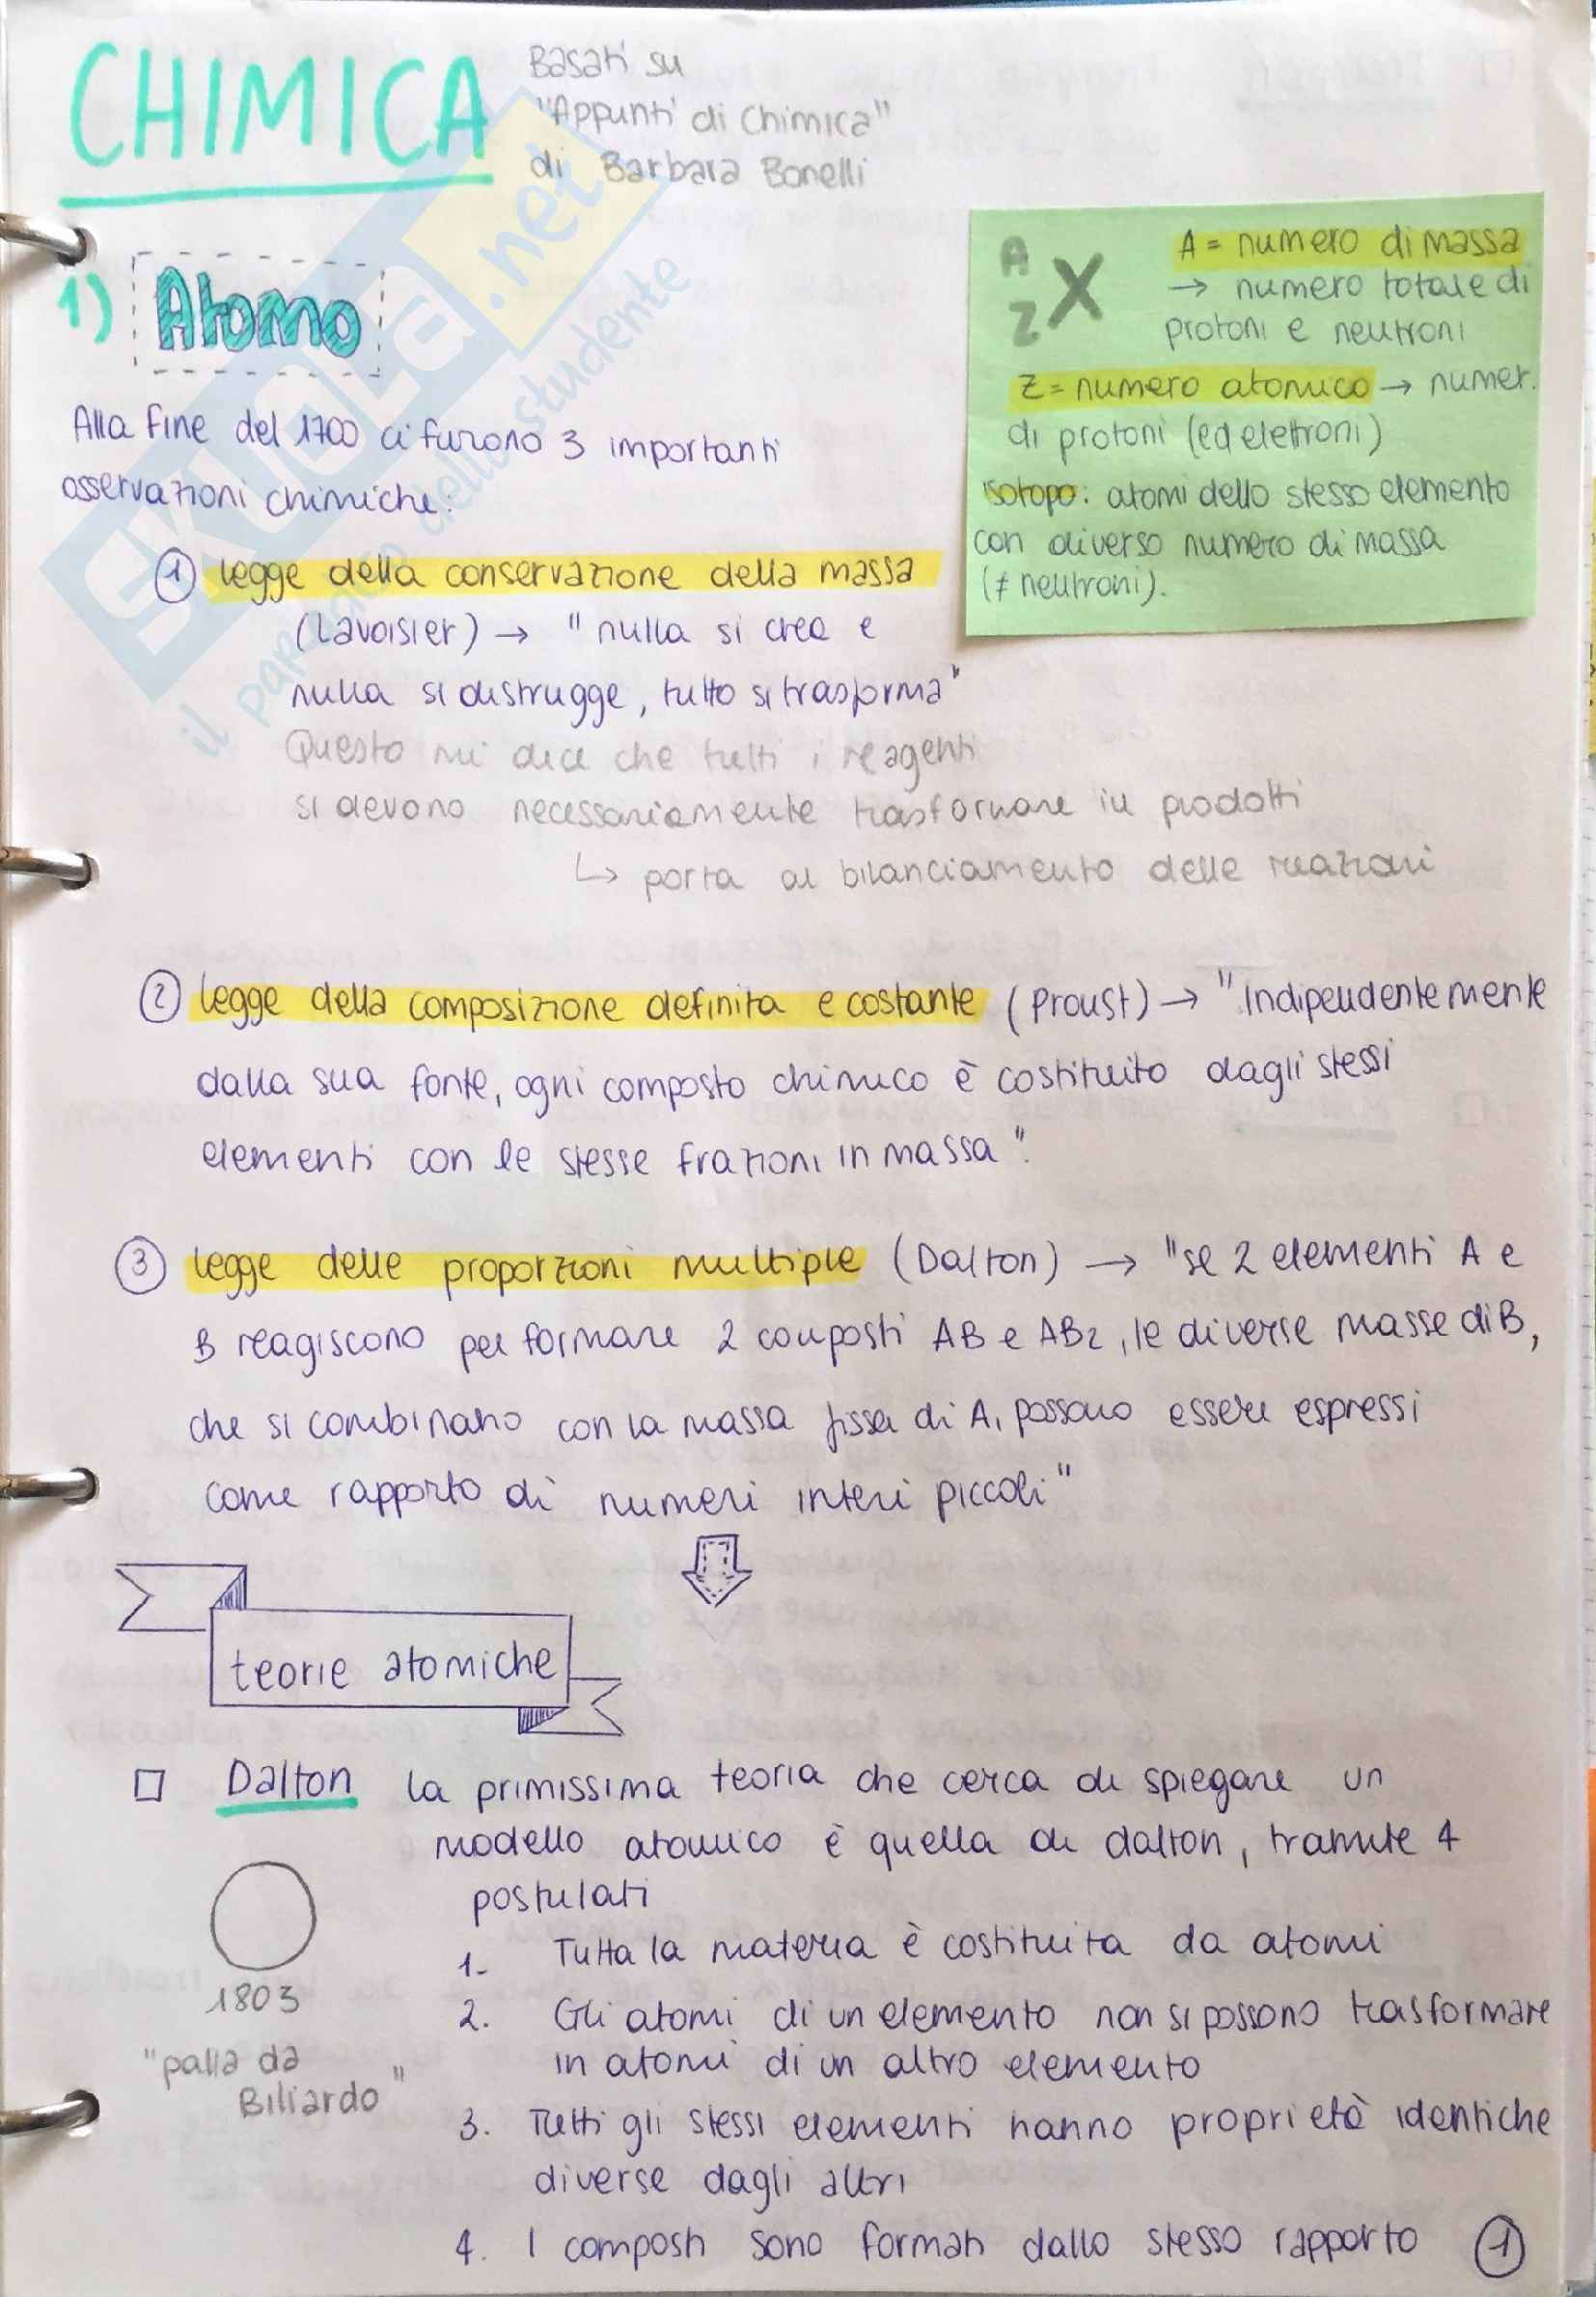 CHIMICA
Basati su
"Appunti di Chimica"
di Barbara Bonelli
1) Atomo
A
Z X
A = numero di massa
→ numero totale di
protoni e neutroni
Z = numero atomico → numer.
di protoni (ed elettroni)
isotopo: atomi dello stesso elemento
con diverso numero di massa
(≠ neutroni).
Alla fine del 1700 ci furono 3 importanti
osservazioni chimiche:
① legge della conservazione della massa
(Lavoisier) → "nulla si crea e
nulla si distrugge, tutto si trasforma"
Questo mi dice che tutti i reagenti
si devono necessariamente trasformare in prodotti
↳ porta al bilanciamento delle reazioni
② legge della composizione definita e costante (Proust) → "Indipendentemente
dalla sua fonte, ogni composto chimico è costituito dagli stessi
elementi con le stesse frazioni in massa".
③ legge delle proporzioni multiple (Dalton) → "se 2 elementi A e
B reagiscono per formare 2 composti AB e AB2, le diverse masse di B,
che si combinano con la massa fissa di A, possono essere espressi
come rapporto di numeri interi piccoli"
teorie atomiche
□ Dalton la primissima teoria che cerca di spiegare un
modello atomico è quella di dalton, tramite 4
postulati
1. Tutta la materia è costituita da atomi
2. Gli atomi di un elemento non si possono trasformare
in atomi di un altro elemento
3. Tutti gli stessi elementi hanno proprietà identiche
diverse dagli altri
4. I composti sono formati dallo stesso rapporto
1803
"palla da
Biliardo"
①
SKUOLA.net
il paradiso dello studente